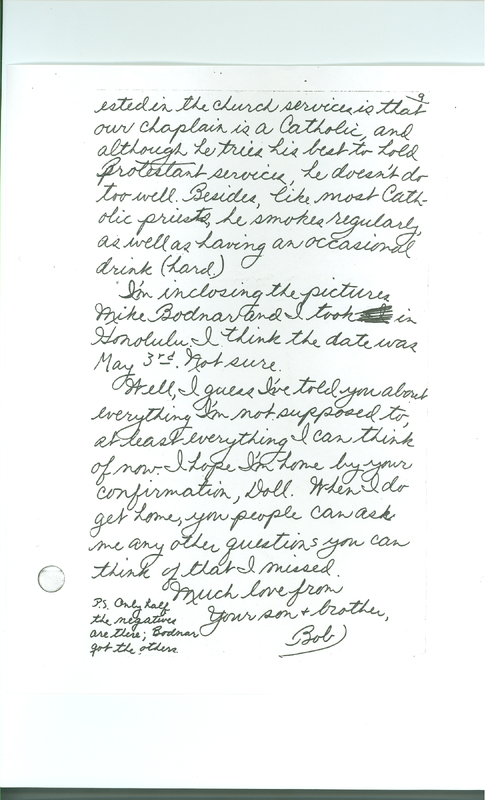 9
ested in the church services is that
our chaplain is a Catholic, and
although he tries his best to hold
Protestant services, he doesn't do
too well. Besides, like most Cath-
olic priests, he smokes regularly,
as well as having an occasional
drink (hard.)
I'm inclosing the pictures
Mike Bodnar and I took in
Honolulu. I think the date was
May 3rd. Not sure.
Well, I guess I've told you about
everything I'm not supposed to,
at least everything I can think
of now - I hope I'm home by your
confirmation, Doll. When I do
get home, you people can ask
me any other questions you can
think of that I missed.
Much love from
Your son + brother,
Bob
P.S. Only half
the negatives
are there; Bodnar
got the others